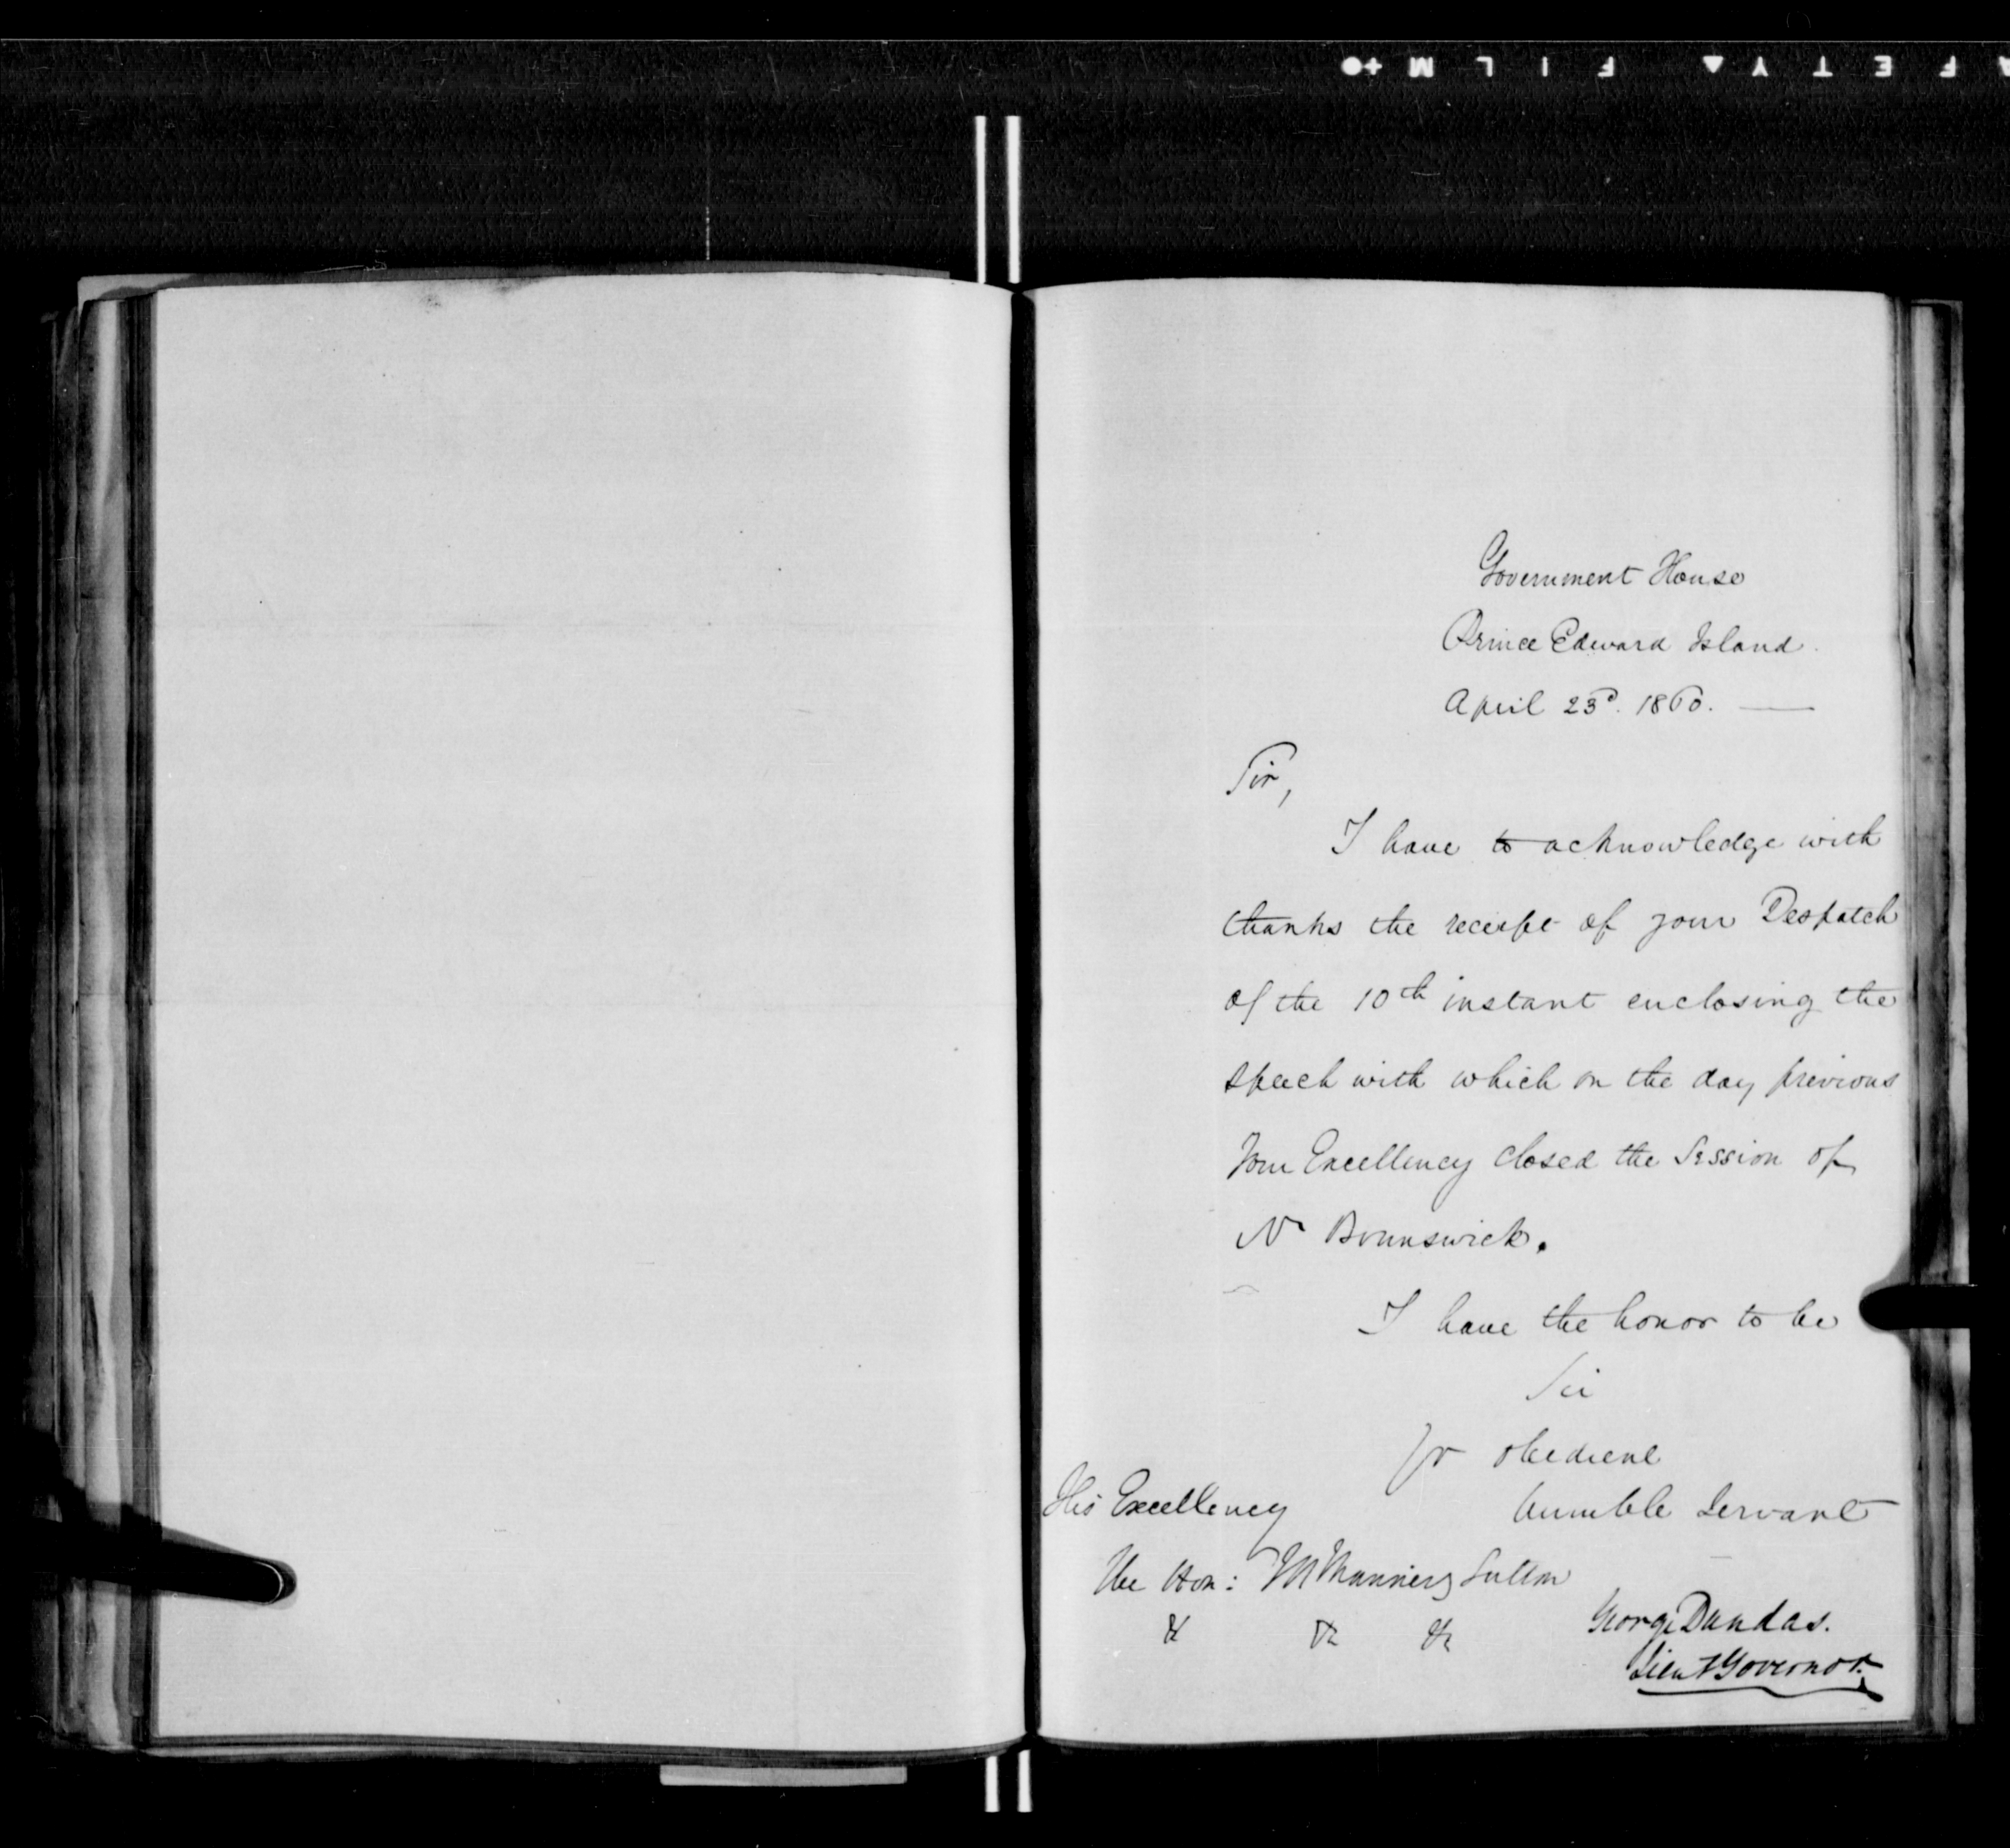 SAFETY▲ FILM +●
Government House
Prince Edward Island.
April 23d. 1860. —
Sir,
I have to acknowledge with
thanks the receipt of your Despatch
of the 10th instant enclosing the
speech with which on the day previous
Your Excellency closed the Session of
Nw Brunswick.
I have the honor to be
Sir
Yr obedient
humble Servant
His Excellency
The Hon: Manners Sutton
&c &c &c
George Dundas.
Lieut Governor.